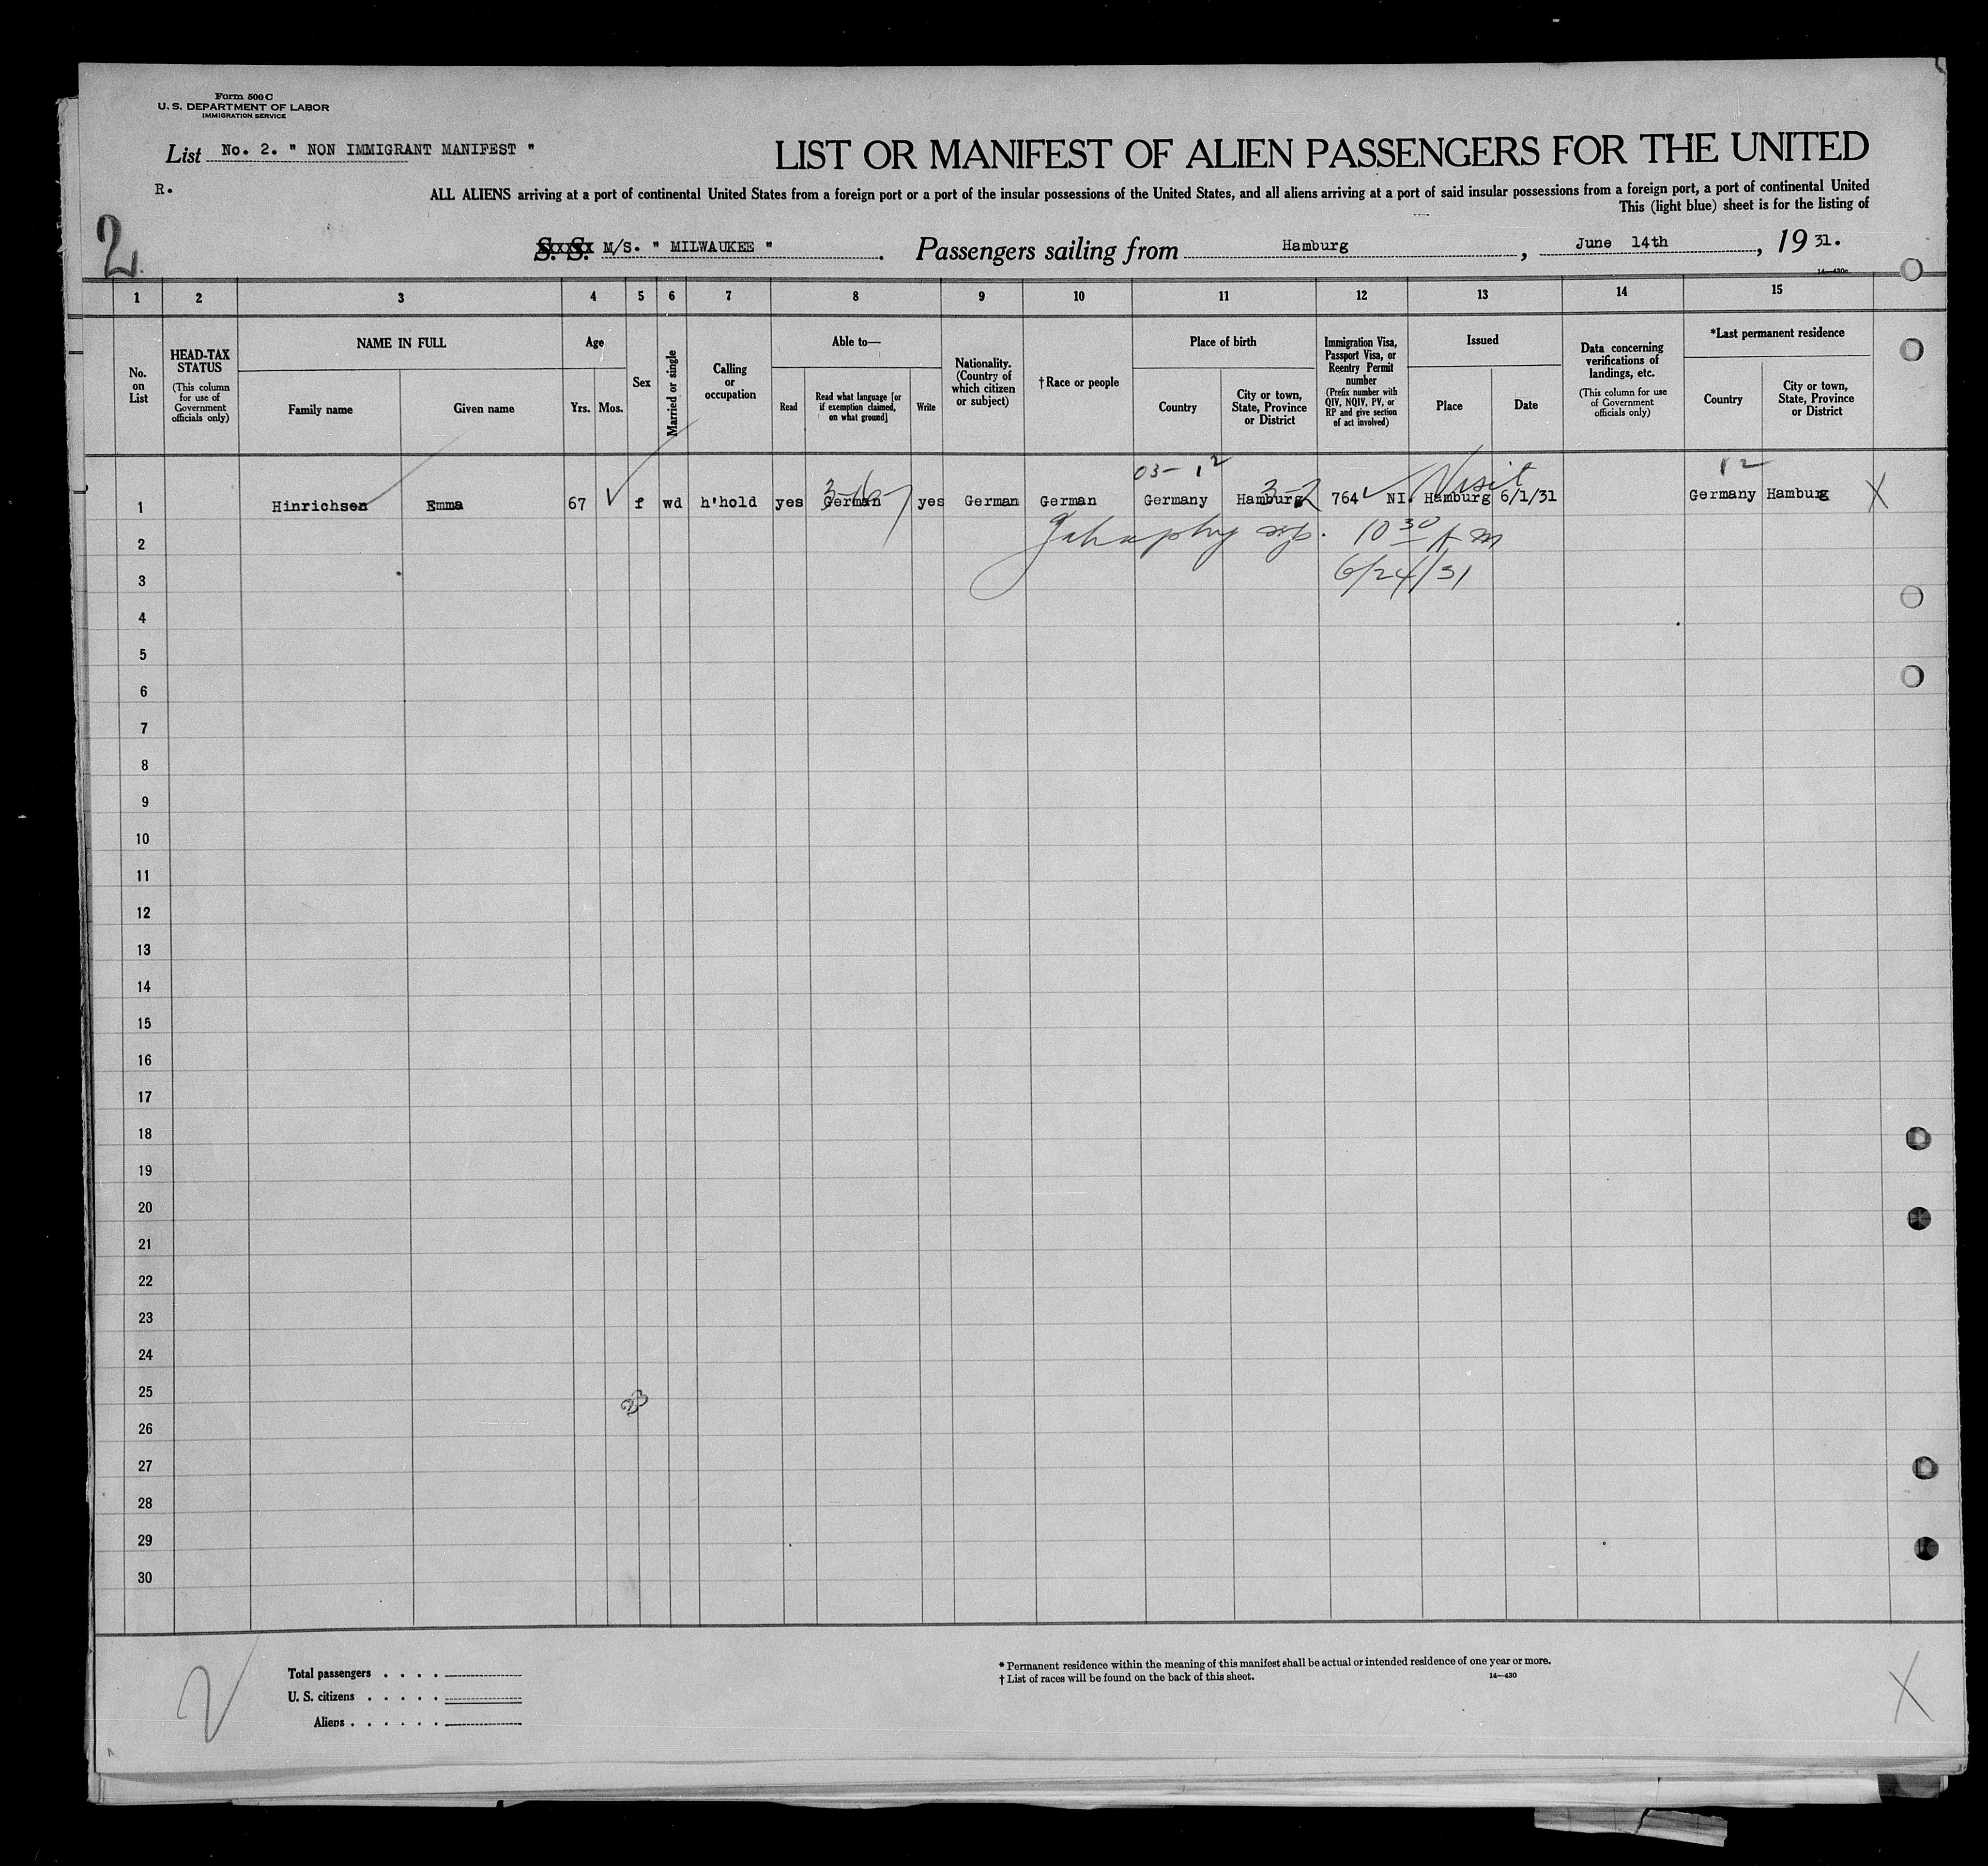 Form 500 C
U. S. DEPARTMENT OF LABOR
IMMIGRATION SERVICE
List No. 2. " NON IMMIGRANT MANIFEST "
LIST OR MANIFEST OF ALIEN PASSENGERS FOR THE UNITED
R.
ALL ALIENS arriving at a port of continental United States from a foreign port or a port of the insular possessions of the United States, and all aliens arriving at a port of said insular possessions from a foreign port, a port of continental United
This (light blue) sheet is for the listing of
2
S. S. M/S. " MILWAUKEE " . Passengers sailing from Hamburg , June 14th , 19 31.
1 2 3 4 5 6 7 8 9 10 11 12 13 14 15
No. on List
HEAD-TAX STATUS (This column for use of Government officials only)
NAME IN FULL
Family name Given name
Age
Yrs. Mos.
Sex
Married or single
Calling or occupation
Able to—
Read Read what language [or if exemption claimed, on what ground] Write
Nationality. (Country of which citizen or subject)
†Race or people
Place of birth
Country City or town, State, Province or District
Immigration Visa, Passport Visa, or Reentry Permit number (Prefix number with QIV, NQIV, PV, or RP and give section of act involved)
Issued
Place Date
Data concerning verifications of landings, etc. (This column for use of Government officials only)
*Last permanent residence
Country City or town, State, Province or District
03- 12 Visit 12
1 Hinrichsen Emma 67 f wd h'hold yes German yes German German Germany Hamburg 764 NI. Hamburg 6/1/31 Germany Hamburg X
2 10 30 A m
3 6/24/31
4
5
6
7
8
9
10
11
12
13
14
15
16
17
18
19
20
21
22
23
24
25
23
26
27
28
29
30
Total passengers . . . .
U. S. citizens . . . . .
Aliens . . . . . .
* Permanent residence within the meaning of this manifest shall be actual or intended residence of one year or more.
† List of races will be found on the back of this sheet. 14—430
X